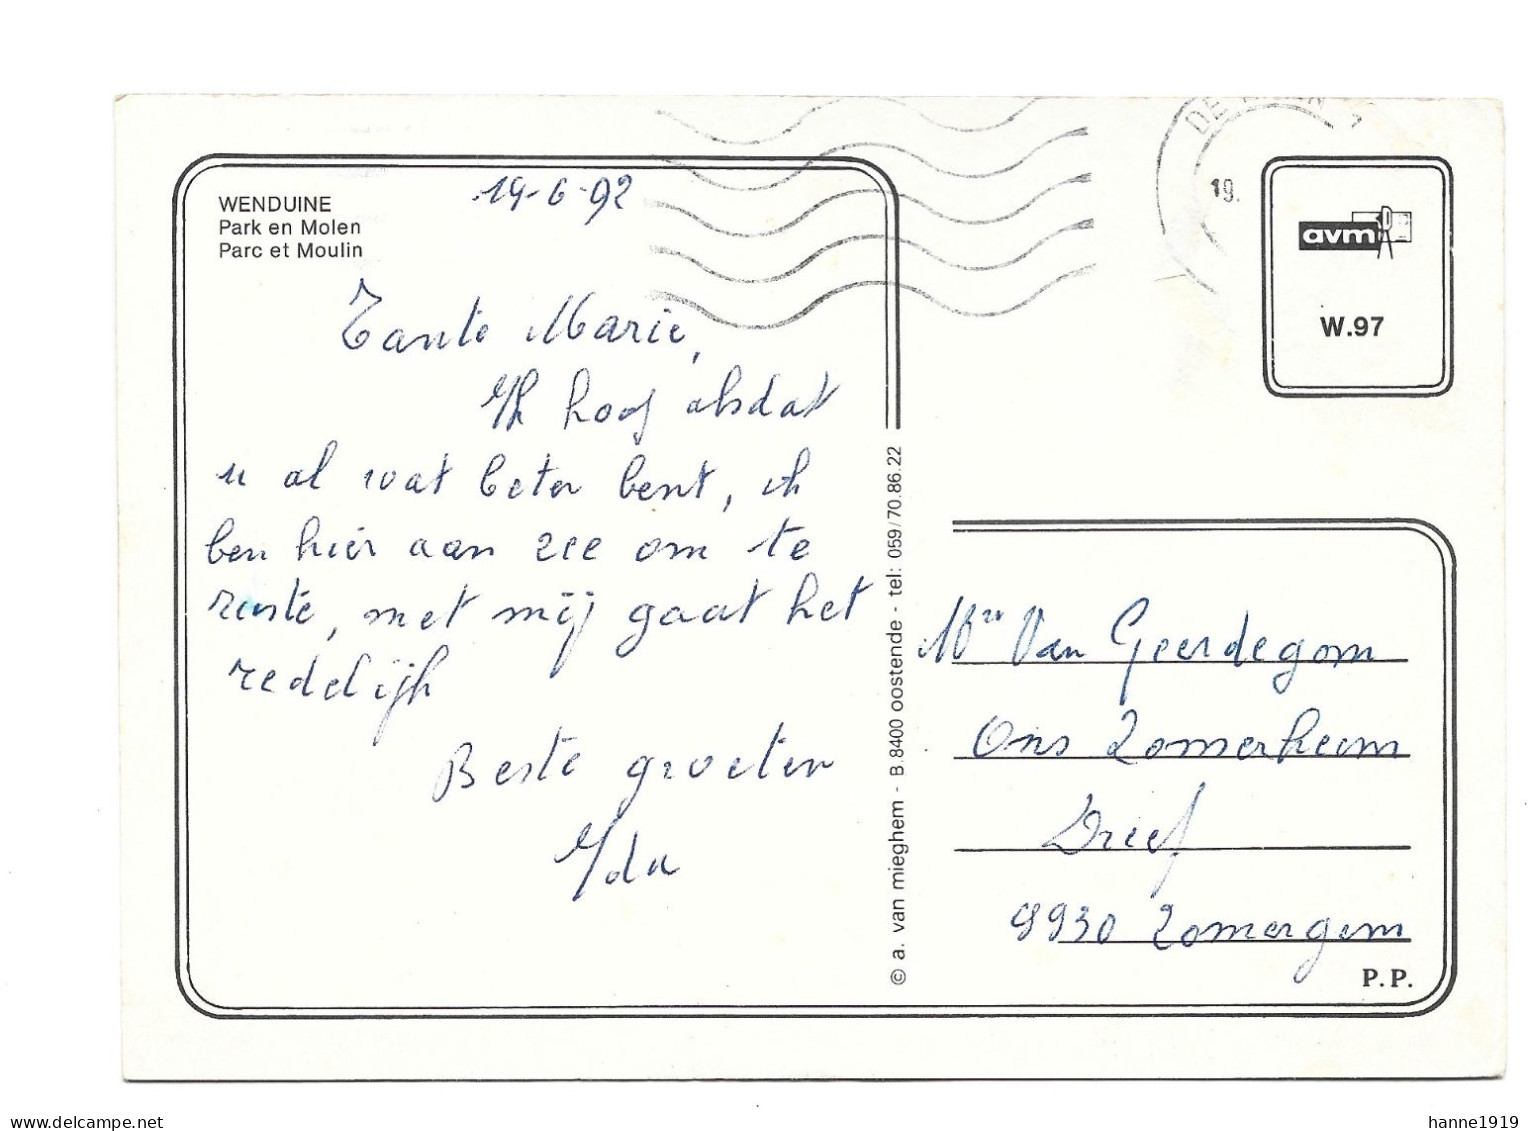 DE HAAN
19.
WENDUINE
Park en Molen
Parc et Moulin
19-6-92
Tante Marie,
Ik hoop alsdat
u al wat beter bent, ik
ben hier aan zee om te
ruste, met mij gaat het
redelijk
Beste groeten
Ida
© a. van mieghem - B.8400 oostende - tel: 059/70.86.22
avm
W.97
Mvr Van Geerdegom
Ons Zomerheem
Dreef
9930 Zomergem
P.P.
delcampe.net
hanne1919